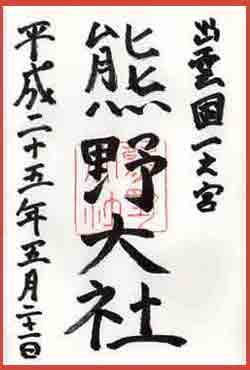 出雲國一之宮
熊野大社
平成二十五年五月二十一日